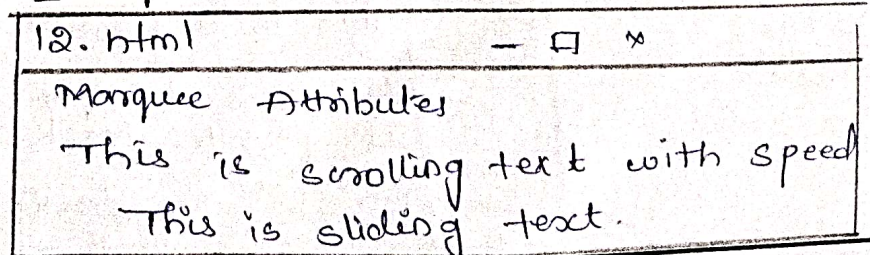 12. html
Marquee Attributes
This is scrolling text with speed
This is sliding text.